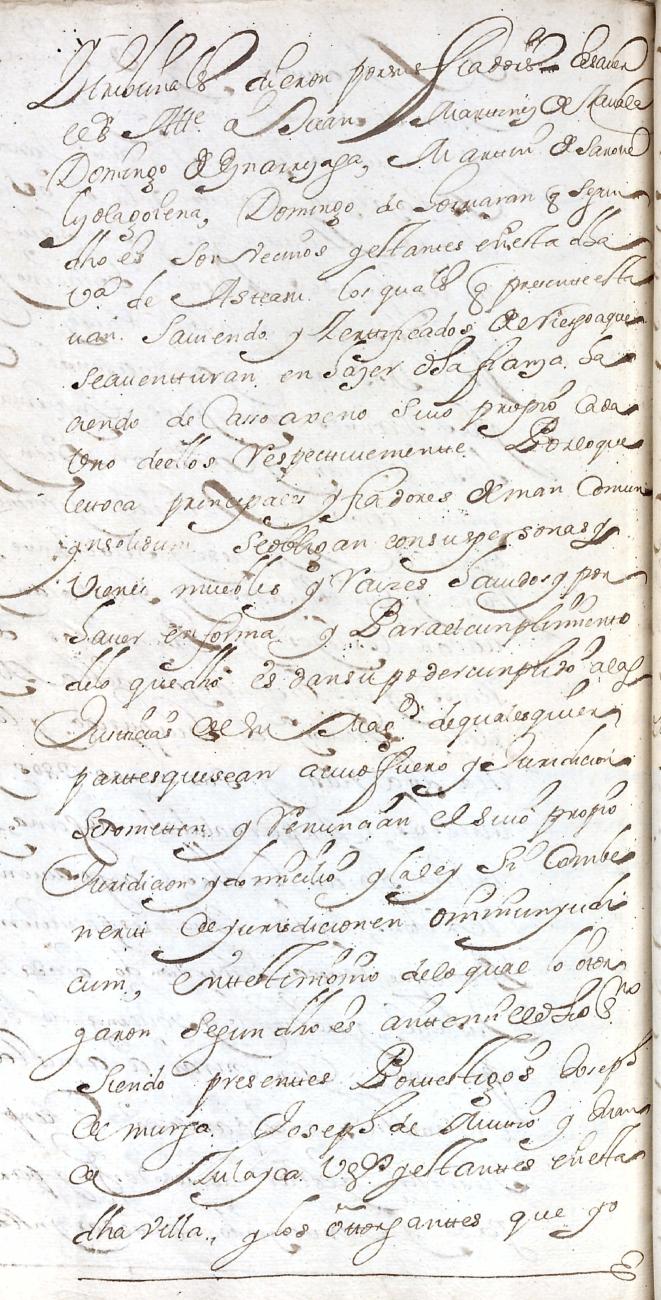 tribunales dieron por sus fiadores es a saver
el dho Atte. a Juan Martinez de
Domingo de Ynarriaga, Martin de
Domingo de segun
dho es son vecinos y estantes en esta dha
va de Asteasu. los quales q presentes esta
uan. Sauiendo y Zertificados de el riesgo a que
se auentturan en hazer dha fianza. ha
ciendo de casso axeno suio propio cada
uno de ellos Respectiuementte Por lo que
le ttoca principales y fiadores de man comun
ynsolidum se obligan con sus personas y
Vienes muebles y Raizes hauidos y por
hauer en forma y Para el cunplimiento
de lo que dho es dan su poder cunplido a las
Justicias de su Magd de qualesquier
parttes que sean a cuio fuero y Juridicion
Se someten y Renuncian el suio propio
Juridicion y domicilio y la ley Si Combe
nerit de jurisdicione omnium yudi
cum, En testimonio de lo qual lo otor
garon segun dho es antte mi el dho essno
Siendo presentes Por testigos Joseph
de murga. Joseph de y Juan
de Zulayca. Vsos y estanttes en esta
dha villa., y los ottorganttes que yo